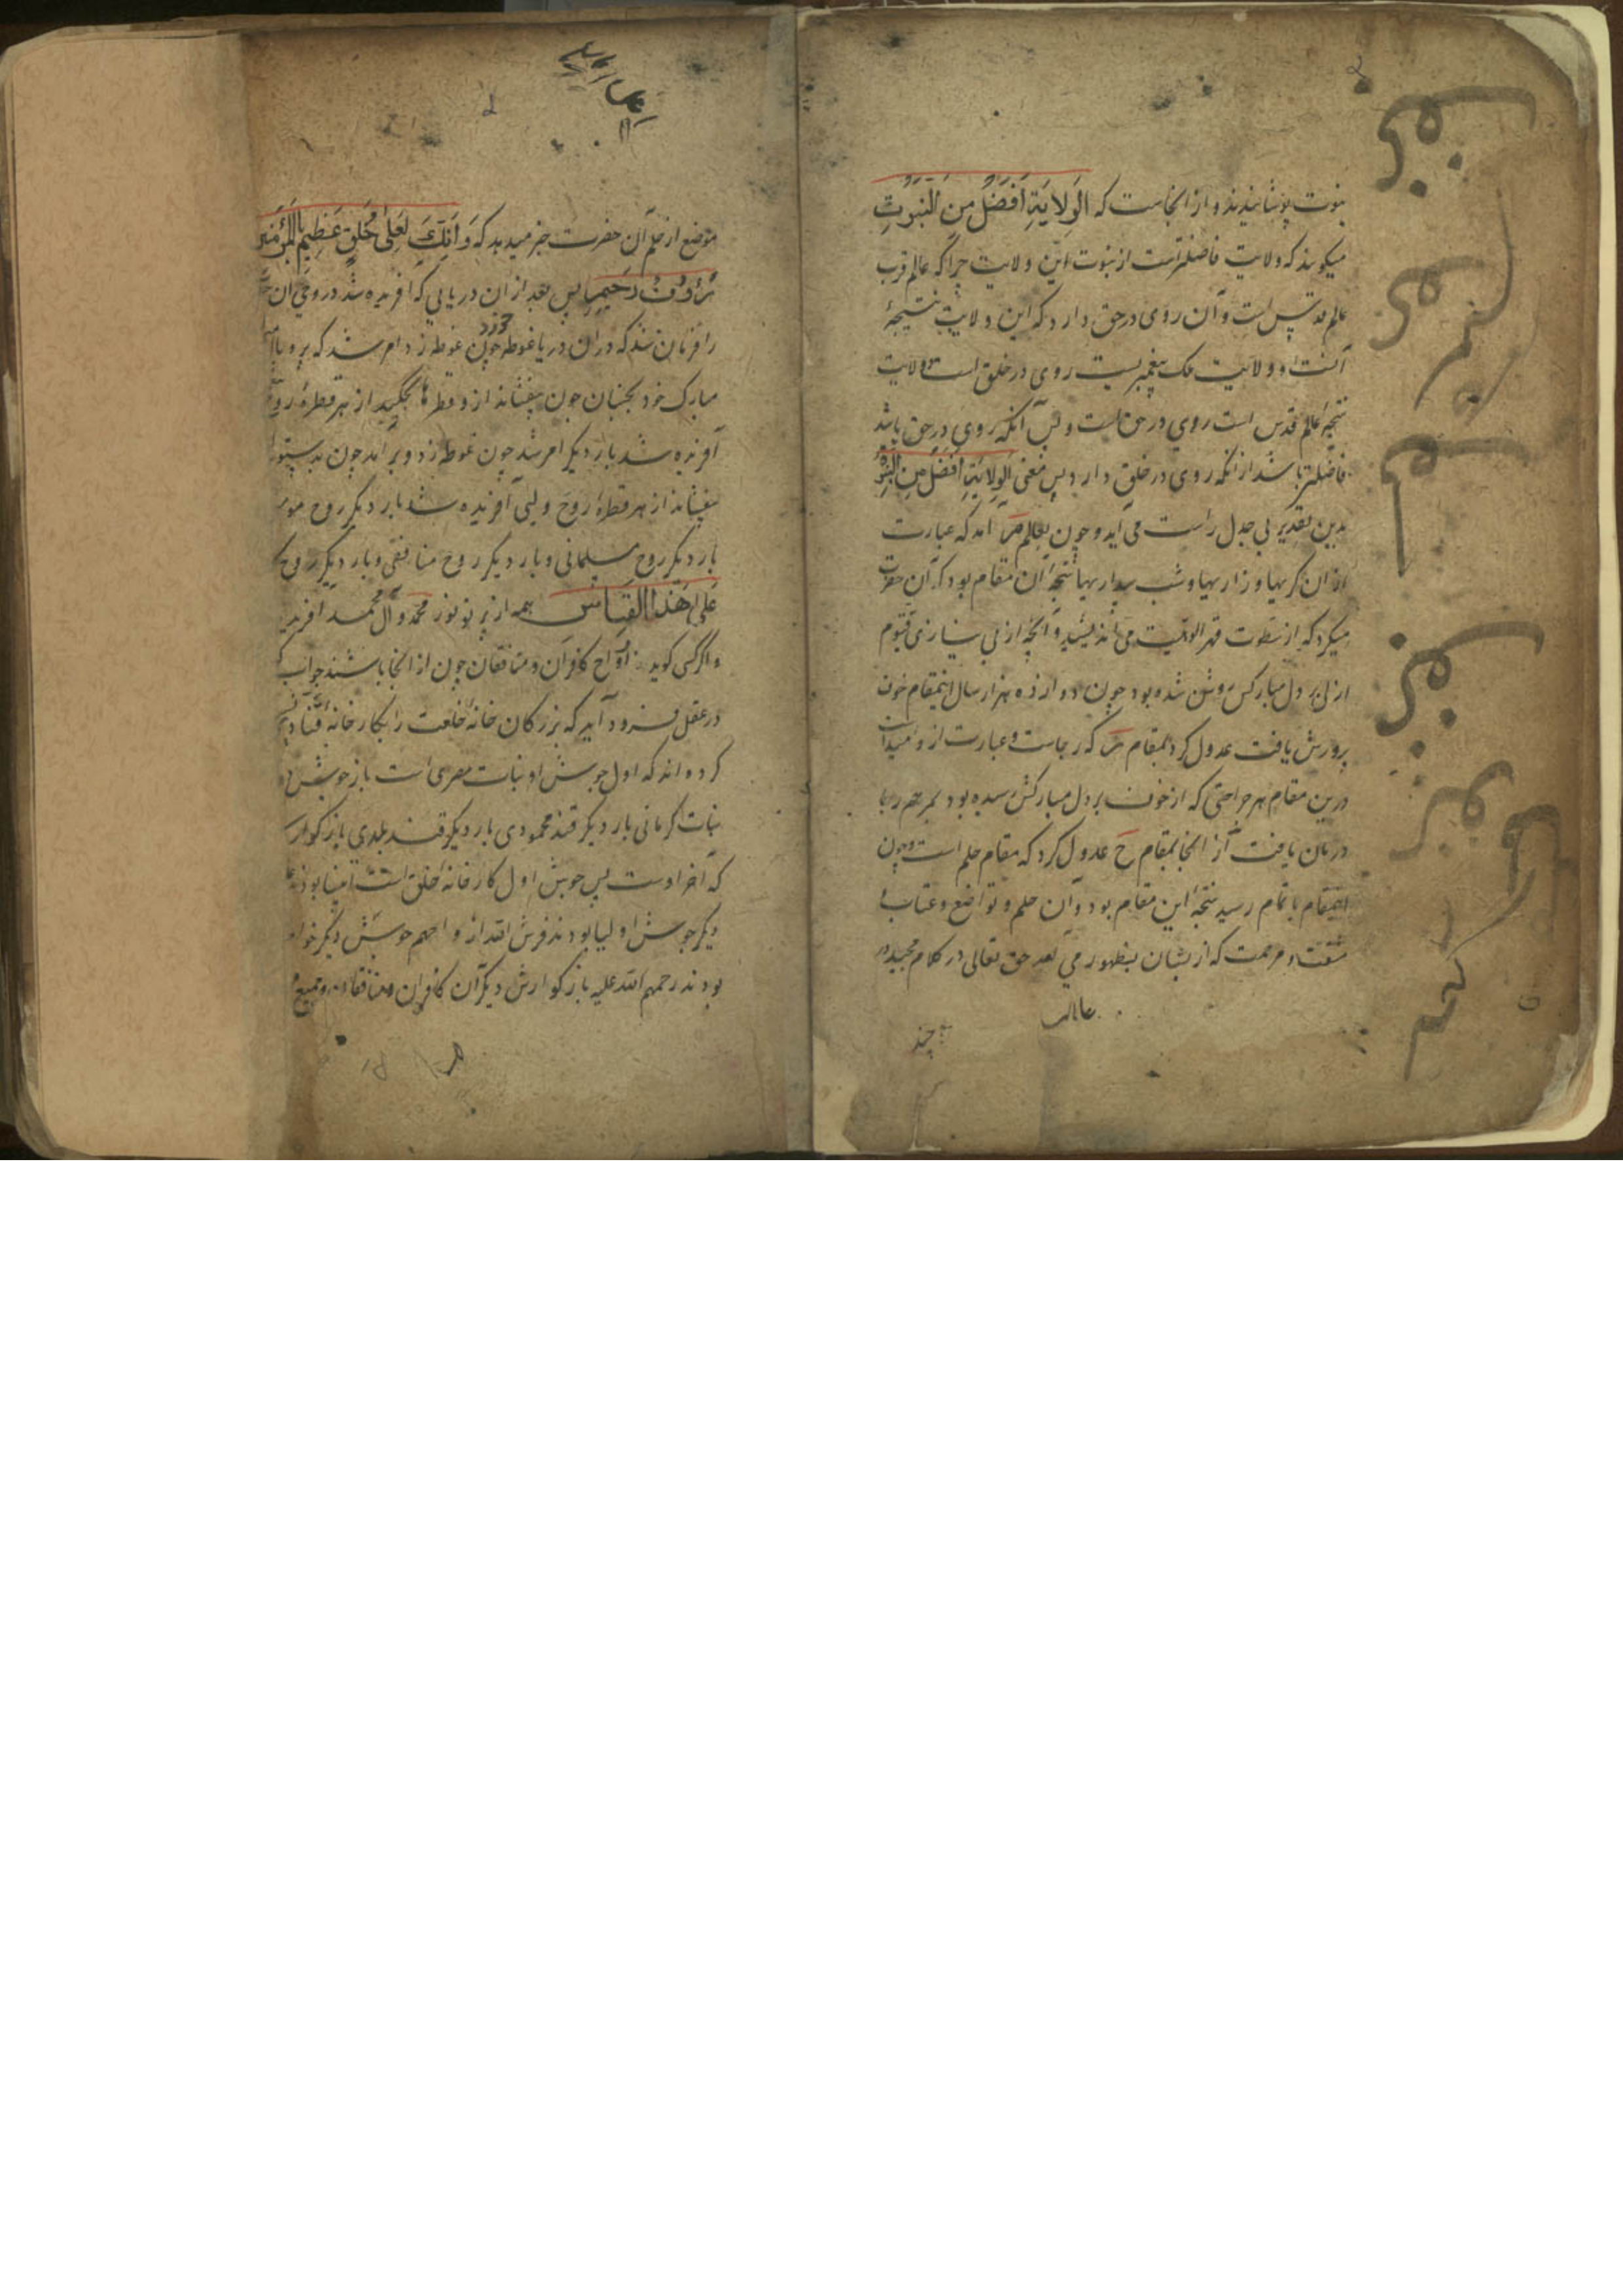 نبوت پوشانیدند و از انجاست که الوَلایَةِ اَفضَلُ مِنَ النُبُوتِ
میکویند که ولایت فاضلتراست از نبوت این ولایت چراکه عالم قرب
عالم است وآن روی درحق دارد که این ولایت نتیجهٔ
آنست و ولایت ملک پیغمبریست روی درخلق است و ولایت
نتیجهٔ عالم قدس است روی درحق است و بس آنکه روی درحق باشد
فاضلتر باشد ازانکه روی درخلق دارد پس معنی الوِلایَةِ اَفضَلُ مِنَ النبوة
بدین تقدیر بی جدل راست می آید و چون بعالم آمد که عبارت
ازان کریهاو زاریهاو شب بیداریها نتیجهٔ آن مقام بود که آن حضرت
میکرد که از سطوت قهر الوهیت می اندیشید و آنچه از بی نیازی قیوم
ازلی بر دل مبارکش روشن شده بود چون دوازده هزار سال اینمقام خوف
پرورش یافت عدول کرد بمقام که رجاست و عبارت از و امیدات
درین مقام هر جراحتی که ازخوف بر دل مبارکش رسیده بود بمرهم رجا
درمان یافت از انجا بمقام ح عدول کرد که مقام حلم است و چون
اینمقام باتمام رسید نتیجهٔ این مقام بود و آن حلم و تواضع و عتاب
شفقت و مرحمت که ازیشان بظهور می آمد حق تعالی در کلام مجید در
چند
موضع از حلم آن حضرت خبر میدهد که وَاِنَّکَ لَعَلیٰ خُلُقٍ عَظیمٍ بالمُؤمنین
رَؤُوفٌ رَحیم پس بعد ازان دریایی که آفریده شد در وی آن
را فرمان شد که دران دریا غوطه خورد چون غوطه زد امر شد که پر و بال
مبارک خود بجنبان چون بیفشاند ازو قطرها بچکید از هر قطرهٔ روح
آفریده شد بار دیگر امر شد چون غوطه زد و بر آمد چون بدستور
بیفشاند از هر قطرهٔ روح ولیی آفریده شد بار دیگر روح
بار دیگر روح مسلمانی و بار دیگر روح منافقی و بار دیگر روح
عَلی هَذَا القِیاس همه از پرتو نور محمد و آل محمد آفرید
و اگر کسی کوید ارواح کافران و منافقان چون از انجا باشند جواب
درعقل فرود آید که بزرکان خانهٔ خلعت را بکارخانهٔ قنادی
کرده اند که اول جوش او نبات مصری است باز جوش
نبات کرمانی بار دیگر قند محمودی بار دیگر قند بلدی باز کوارس
که آخر اوست پس جوش اول کارخانهٔ خلق است انبیا بودند
دیگر جوش اولیا بودند قدس الله ارواحهم جوش دیگر
بودند رحمهم الله علیه باز کوارش دیگر آن کافران و منافقان و جمیع